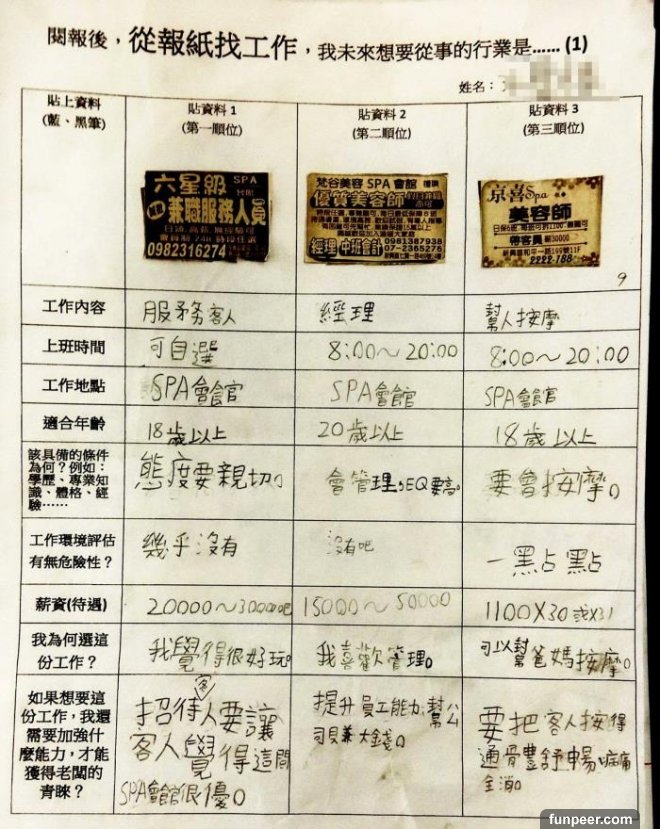 閱報後，從報紙找工作，我未來想要從事的行業是…… (1)
姓名：
貼上資料
(藍、黑筆)
貼資料 1
(第一順位)
貼資料 2
(第二順位)
貼資料 3
(第三順位)
六星級 SPA
兼職服務人員
0982316274
梵谷美容 SPA 會館
優質美容師
經理 中班會計
0981387938
07-2385275
京喜Spa
美容師
帶客員
2222-188
9
工作內容 服務客人 經理 幫人按摩
上班時間 可自選 8:00～20:00 8:00～20:00
工作地點 SPA會館 SPA會館 SPA會館
適合年齡 18歲以上 20歲以上 18歲以上
該具備的條件
為何？例如：
學歷、專業知
識、體格、經
驗……
態度要親切。
會管理,EQ要高。
要會按摩。
工作環境評估
有無危險性？
幾乎沒有
沒有吧
一點點
薪資(待遇) 20000～30000吧 15000～50000 1100X30或X31
我為何選這
份工作？
我覺得很好玩。
我喜歡管理。
可以幫爸媽按摩。
如果想要這
份工作，我還
需要加強什
麼能力，才能
獲得老闆的
青睞？
招待客人要讓
客人覺得這間
SPA會館很優。
提升員工能力,幫公
司賺大錢。
要把客人按得
通體舒暢,病痛
全消。
funpeer.com